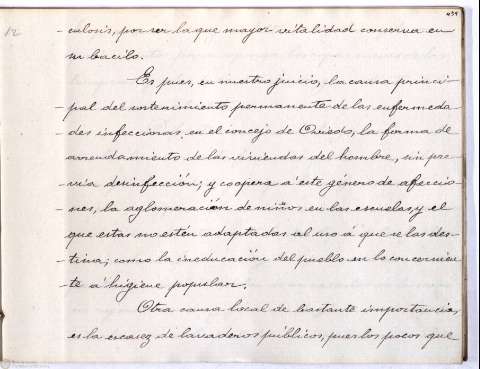 12
434
-culosis, por ser la que mayor vitalidad conserva en
su bacilo.
Es pues, en nuestro juicio, la causa princi-
-pal del sostenimiento permanente de las enfermeda
-des infecciosas en el concejo de Oviedo, la forma de
-arrendamiento de las viviendas del hombre, sin pre-
-via desinfección; y coopera á este género de afeccio-
-nes, la aglomeración de niños en las escuelas, y el
que estas no estén adaptadas al uso á que se las des-
-tina; como la ineducación del pueblo en lo concernien-
-te á higiene popular.
Otra causa local de bastante importancia,
es la escasez de lavaderos públicos, pues los pocos que